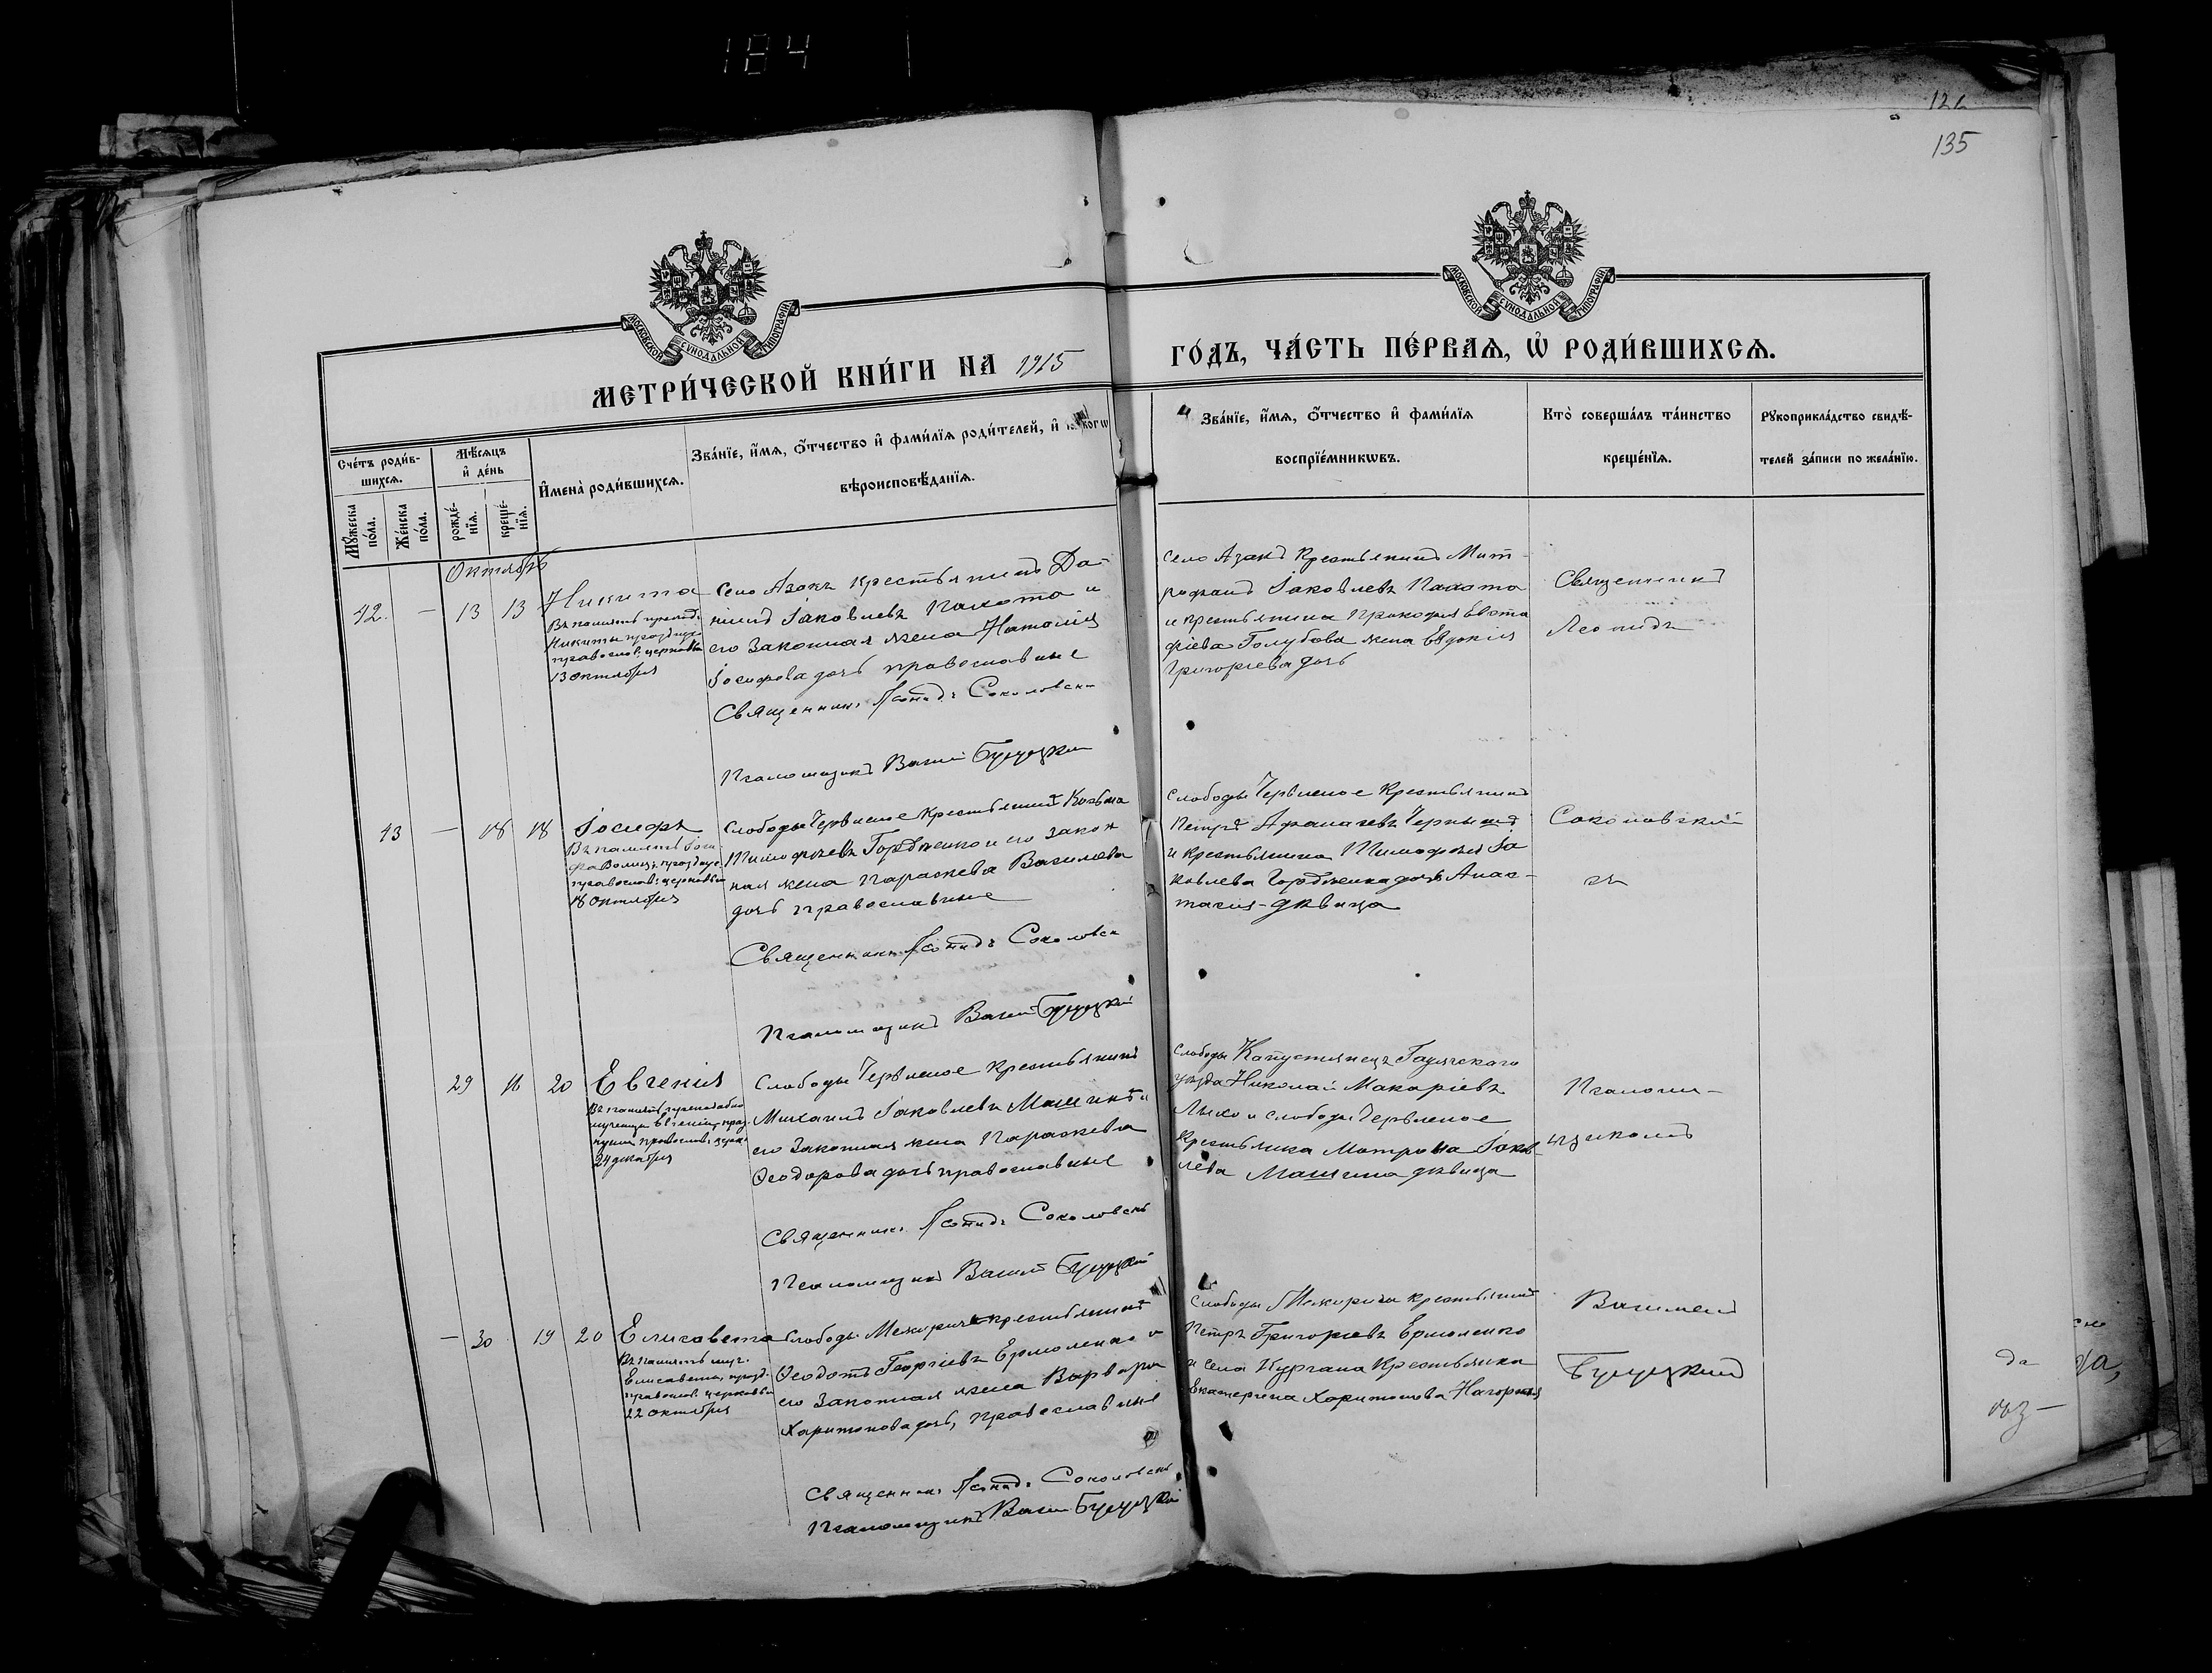 184
135
МОСКОВСКОЙ СѴНОДАЛЬНОЙ ТИПОГРАФІИ
МОСКОВСКОЙ СѴНОДАЛЬНОЙ ТИПОГРАФІИ
МЕТРИ́ЧЕСКОЙ КНИ́ГИ НА 1915
ГО́ДЪ, ЧА́СТЬ ПЕ́РВАѦ, Ѽ РОДИ́ВШИХСѦ.
Сче́тъ роди́в-
шихсѧ.
Мꙋ́жеска по́ла.
Же́нска по́ла.
Мѣ́сѧцъ и҆ де́нь
рожде́-нїѧ.
креще́-нїѧ.
И҆мена̀ роди́вшихсѧ.
Зва́нїе, и҆́мѧ, ѻ҆́тчество и҆ фами́лїѧ роди́телей, и҆ когѡ
вѣроисповѣ́данїѧ.
Зва́нїе, и҆́мѧ, ѻ҆́тчество и҆ фами́лїѧ
воспрїе́мникѡвъ.
Кто̀ соверша́лъ та́инство
креще́нїѧ.
Рꙋкоприкла́дство свидѣ́-
телей за́писи по жела́нїю.
Октябрь
42. — 13 13 Никита
Въ память препод.
Никиты празднуе.
православ. церковью
13 октября
Село Азакъ крестьянинъ Да-
нiилъ Іаковлевъ Пахота и
его законная жена Наталiя
Іосифова дочь православные
Священникъ Леонидъ Соколовскi
Псаломщикъ Васил Буцуцкiй
Село Азакъ Крестьянинъ Мит-
рофанъ Іаковлевъ Пахота
и крестьянина Прокофiя Евста
фiева Голубова жена Евдокiя
Григорiева дочь
Священникъ
Леонидъ
43 — 18 18 Іосифъ
православ. церковью
18 октября
Слободы Червленое крестьянинъ Козьма
Тимофѣевъ Гордѣенко и его закон
ная жена Параскева Василiева
дочь православные
Священникъ Леонидъ Соколовск
Псаломщикъ Васил Буцуцкiй
Слободы Червленое Крестьянинъ
Петръ Афанасiевъ Чернышъ
и крестьянина Тимофея Іа
ковлева Гордѣенка дочь Анас-
тасiя - дѣвица
Соколовскiй
съ
29 18 20 Евгенiя
Въ память преподобно
мученицы Евгенiи, праз-
нуем. православ. церк.
24 декабря
Слободы Червленое крестьянинъ
Михаилъ Іаковлевъ Машинъ и
его законная жена Параскева
Ѳеодорова дочь православные
Священникъ Леонидъ Соколовскi
Псаломщикъ Васил Буцуцкiй
Слободы Капустянецъ Гадячского
уѣзда Николай Макарiевъ
Лыхо и слободы Червленое
Крестьянка Матрона Іаков-
лева Машина дѣвица
Псалом-
щикомъ
— 30 19 20 Елисавета
Въ память муч.
Елисаветы, празд.
православ. церковью
22 октября
Слободы Межирича крестьянинъ
Ѳеодотъ Георгiевъ Ермоленко и
его законная жена Варвара
Харитонова дочь, православные
Священникъ Леонидъ Соколовскi
Псаломщикъ Васил Буцуцкiй
Слободы Межирича крестьянинъ
Петръ Григорiевъ Ермоленко
и села Кургана Крестьянка
Екатерина Харитонова Нагорная
Василiемъ
Буцуцкимъ